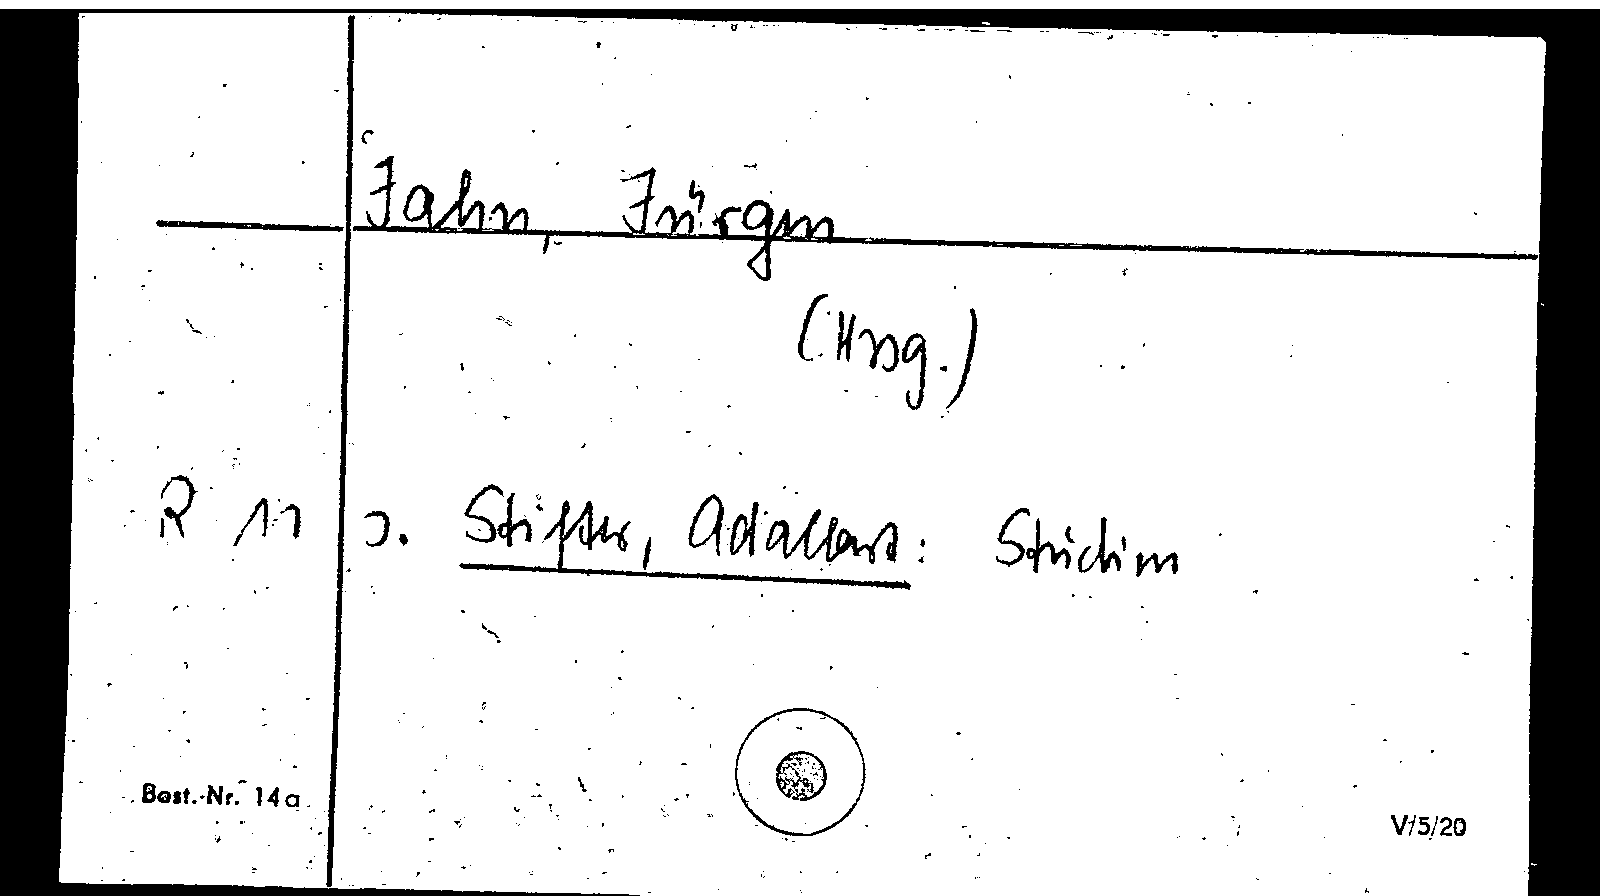 Jahn, Jürgen
(Hrsg.)
R 11 s. Stifter, Adalbert: Studien
Best.-Nr. 14a
V/5/20